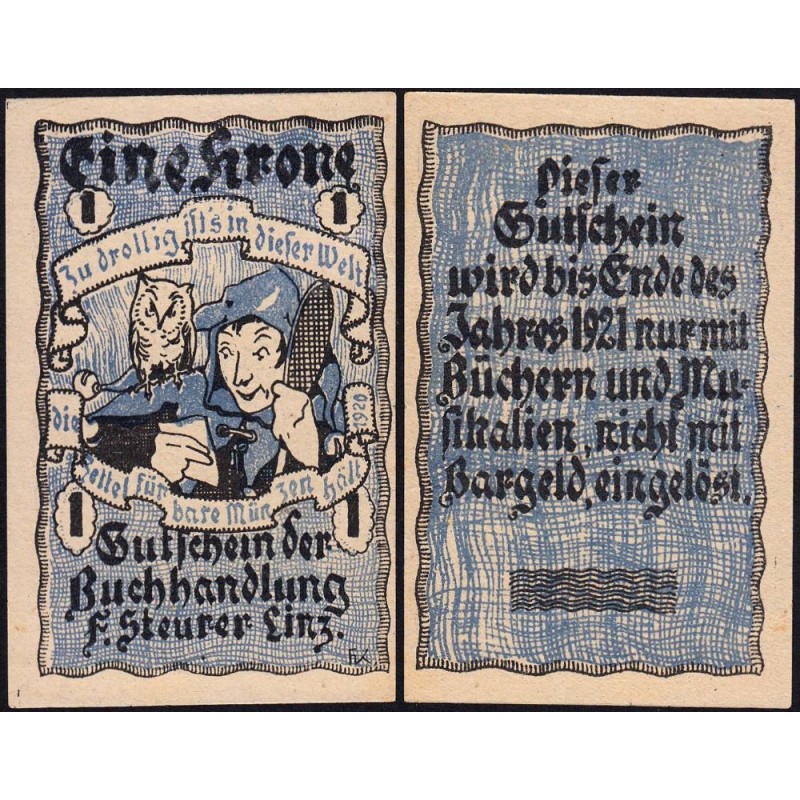 Eine Krone
1 1
Zu drollig ist's in dieser Welt
die Zettel für bare Münzen hält
1920
1 1
Gutschein der
Buchhandlung
F. Steurer Linz.
FK
Dieser
Gutschein
wird bis Ende des
Jahres 1921 nur mit
Büchern und Mu-
sikalien, nicht mit
Bargeld, eingelöst.